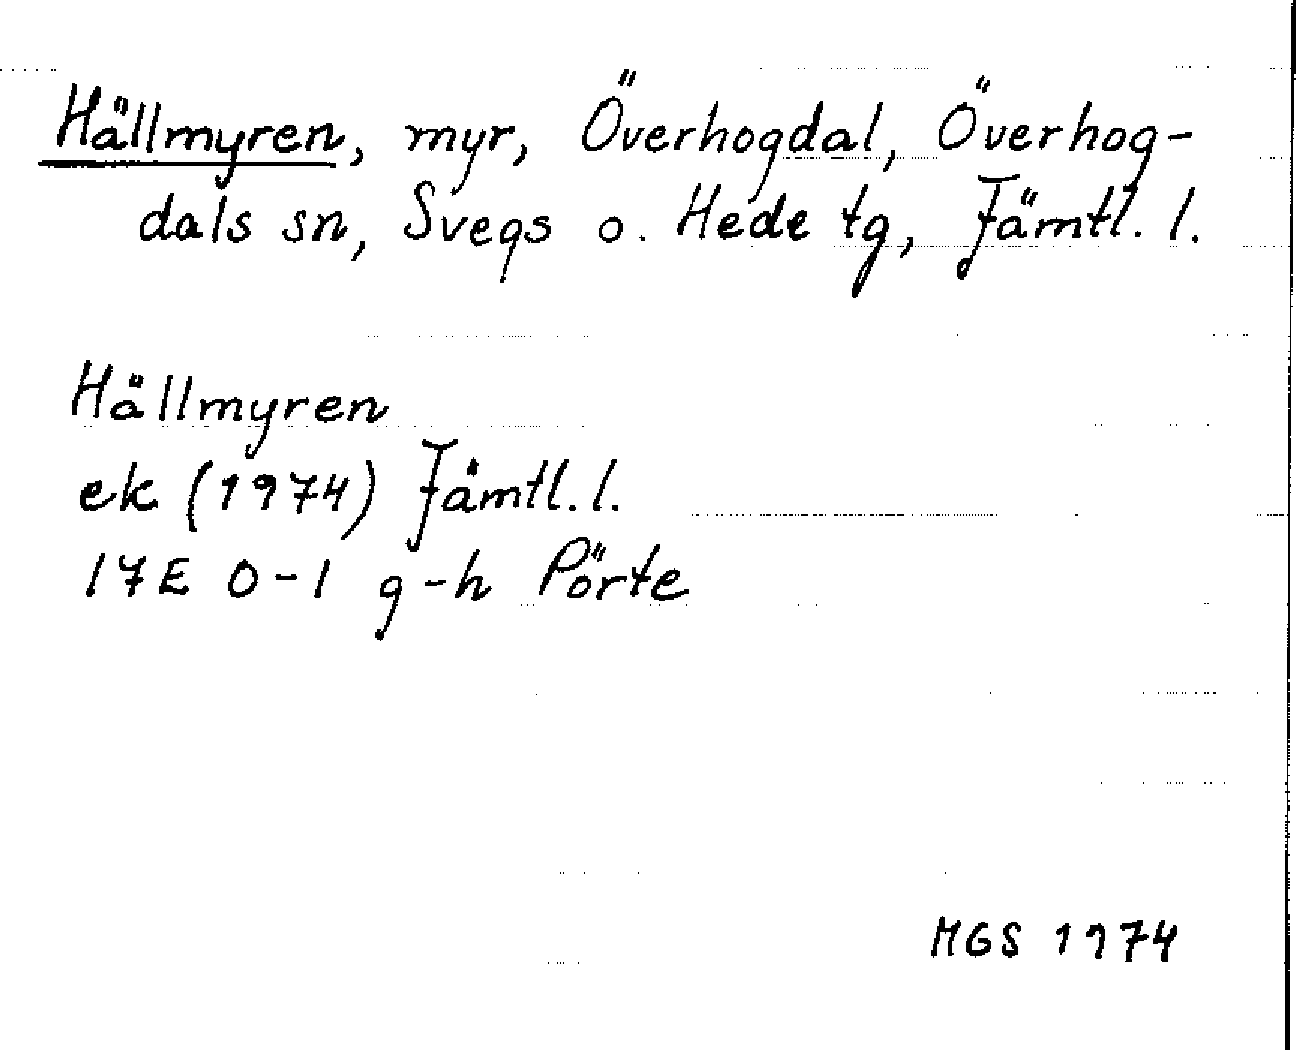 Hällmyren, myr, Överhogdal, Överhog-
dals sn, Svegs o. Hede tg, Jämtl. l.
Hällmyren
ek (1974) Jämtl. l.
17E 0-1 g-h Pörte
MGS 1974